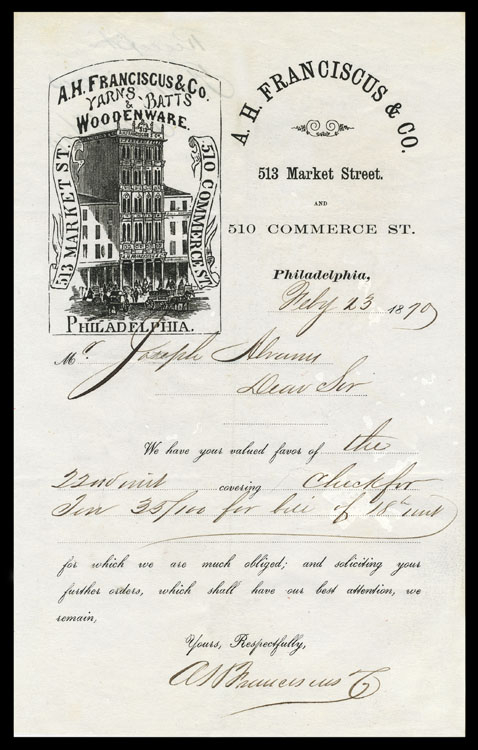 A.H. FRANCISCUS & CO.
YARNS BATTS
&
WOODENWARE.
513 MARKET ST.
510 COMMERCE ST.
PHILADELPHIA.
A. H. FRANCISCUS & CO.
513 Market Street.
AND
510 COMMERCE ST.
Philadelphia,
Feby 23 1870
Mr Joseph
Dear Sir
We have your valued favor of the
22nd inst covering Check for
35/100 for bill of 18th inst
for which we are much obliged; and soliciting your
further orders, which shall have our best attention, we
remain,
Yours, Respectfully,
A H Franciscus & Co